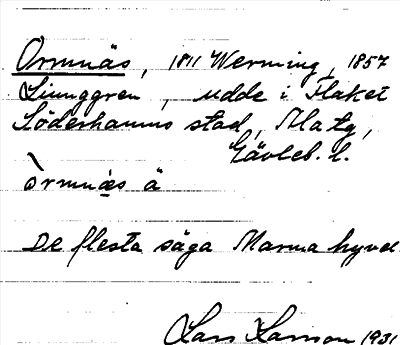 Ormnäs, 1811 Werming, 1857
Ljunggren, udde i Flaket
Söderhamns stad, Ala tg,
Gävleb. l.
òrmnæs ä
De flesta säga Marma hyvel
Lars Larsson 1931